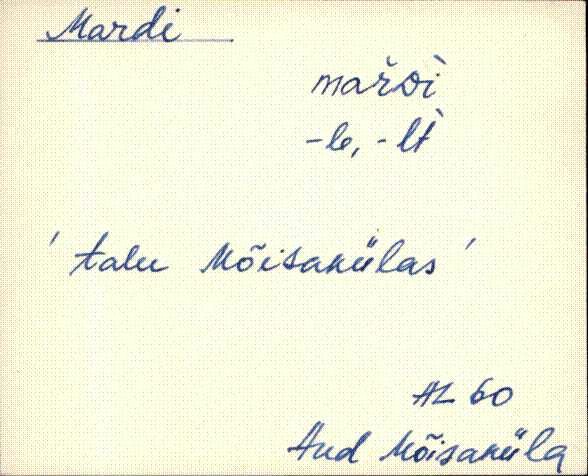 Mardi
mar̆Dì
-le, -lt̀
' talu Mõisakülas '
AL 60
Aud Mõisaküla